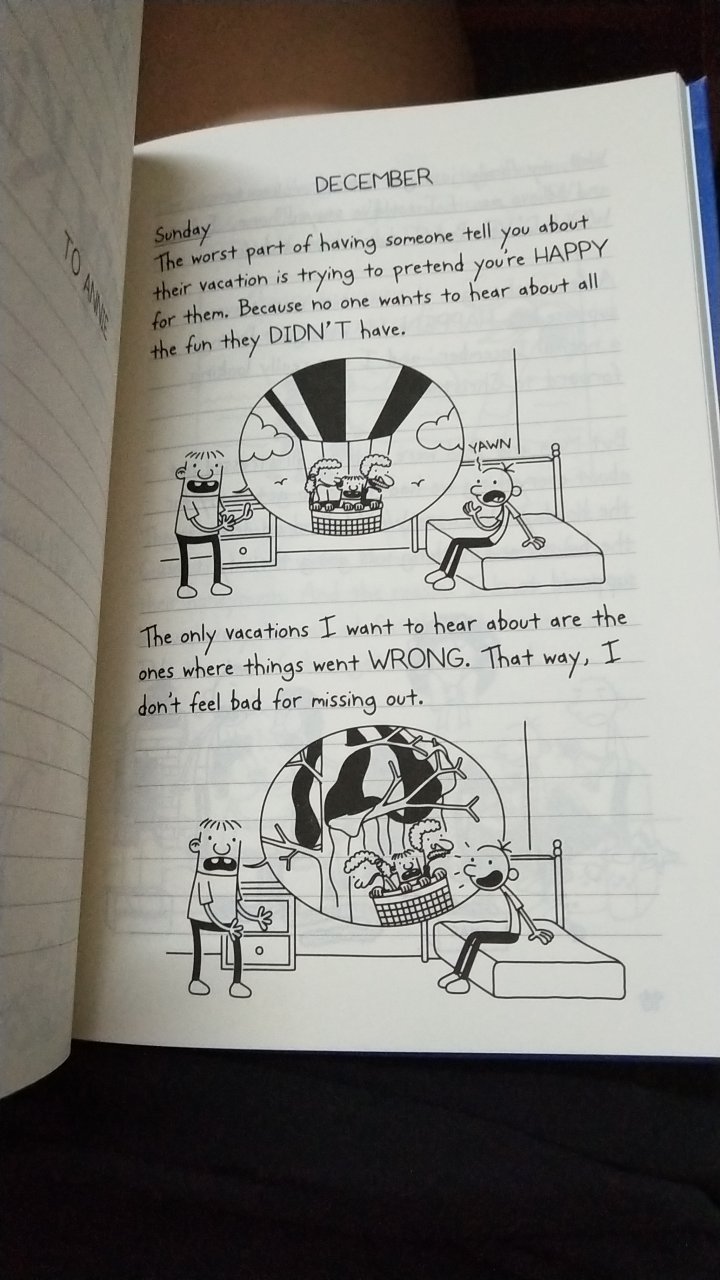 TO ANNIE
DECEMBER
Sunday
The worst part of having someone tell you about
their vacation is trying to pretend you're HAPPY
for them. Because no one wants to hear about all
the fun they DIDN'T have.
YAWN
The only vacations I want to hear about are the
ones where things went WRONG. That way, I
don't feel bad for missing out.